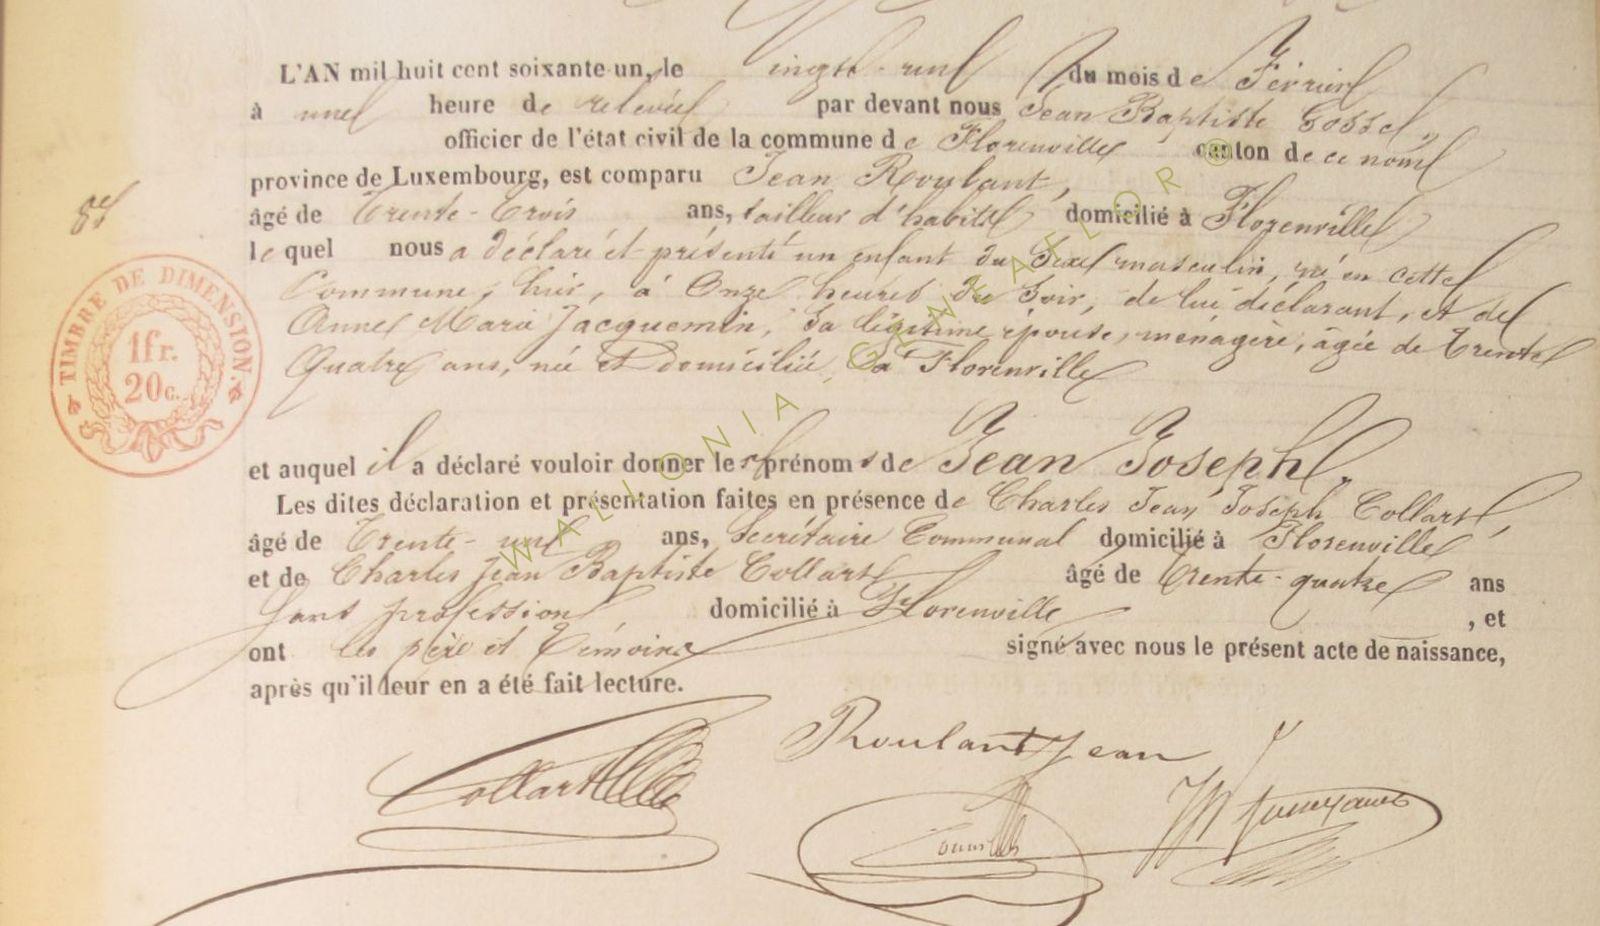 L'AN mil huit cent soixante-un, le vingt-un du mois de Février
à une heure de relevée par devant nous Jean Baptiste Gosset,
officier de l'état civil de la commune de Florenville canton de ce nom
province de Luxembourg, est comparu Jean Roulant,
âgé de Trente-Trois ans, tailleur d'habits domicilié à Florenville
lequel nous a déclaré et présenté un enfant du Sexe masculin, né en cette
Commune, hier, à Onze heures du Soir, de lui déclarant, et de
Anne Marie Jacquemin, Sa légitime épouse, ménagère, âgée de Trente
Quatre ans, née et domiciliée à Florenville
TIMBRE DE DIMENSION.
1 fr.
20 c.
et auquel il a déclaré vouloir donner les prénoms de Jean Joseph.
Les dites déclaration et présentation faites en présence de Charles Jean Joseph Collart,
âgé de Trente-un ans, Secrétaire Communal domicilié à Florenville
et de Charles Jean Baptiste Collart âgé de Trente-quatre ans
Sans profession domicilié à Florenville, et
ont les père et Témoins signé avec nous le présent acte de naissance,
après qu'il leur en a été fait lecture.
Roulant Jean
Collart
WALLONIA - GENEAFLOR ®